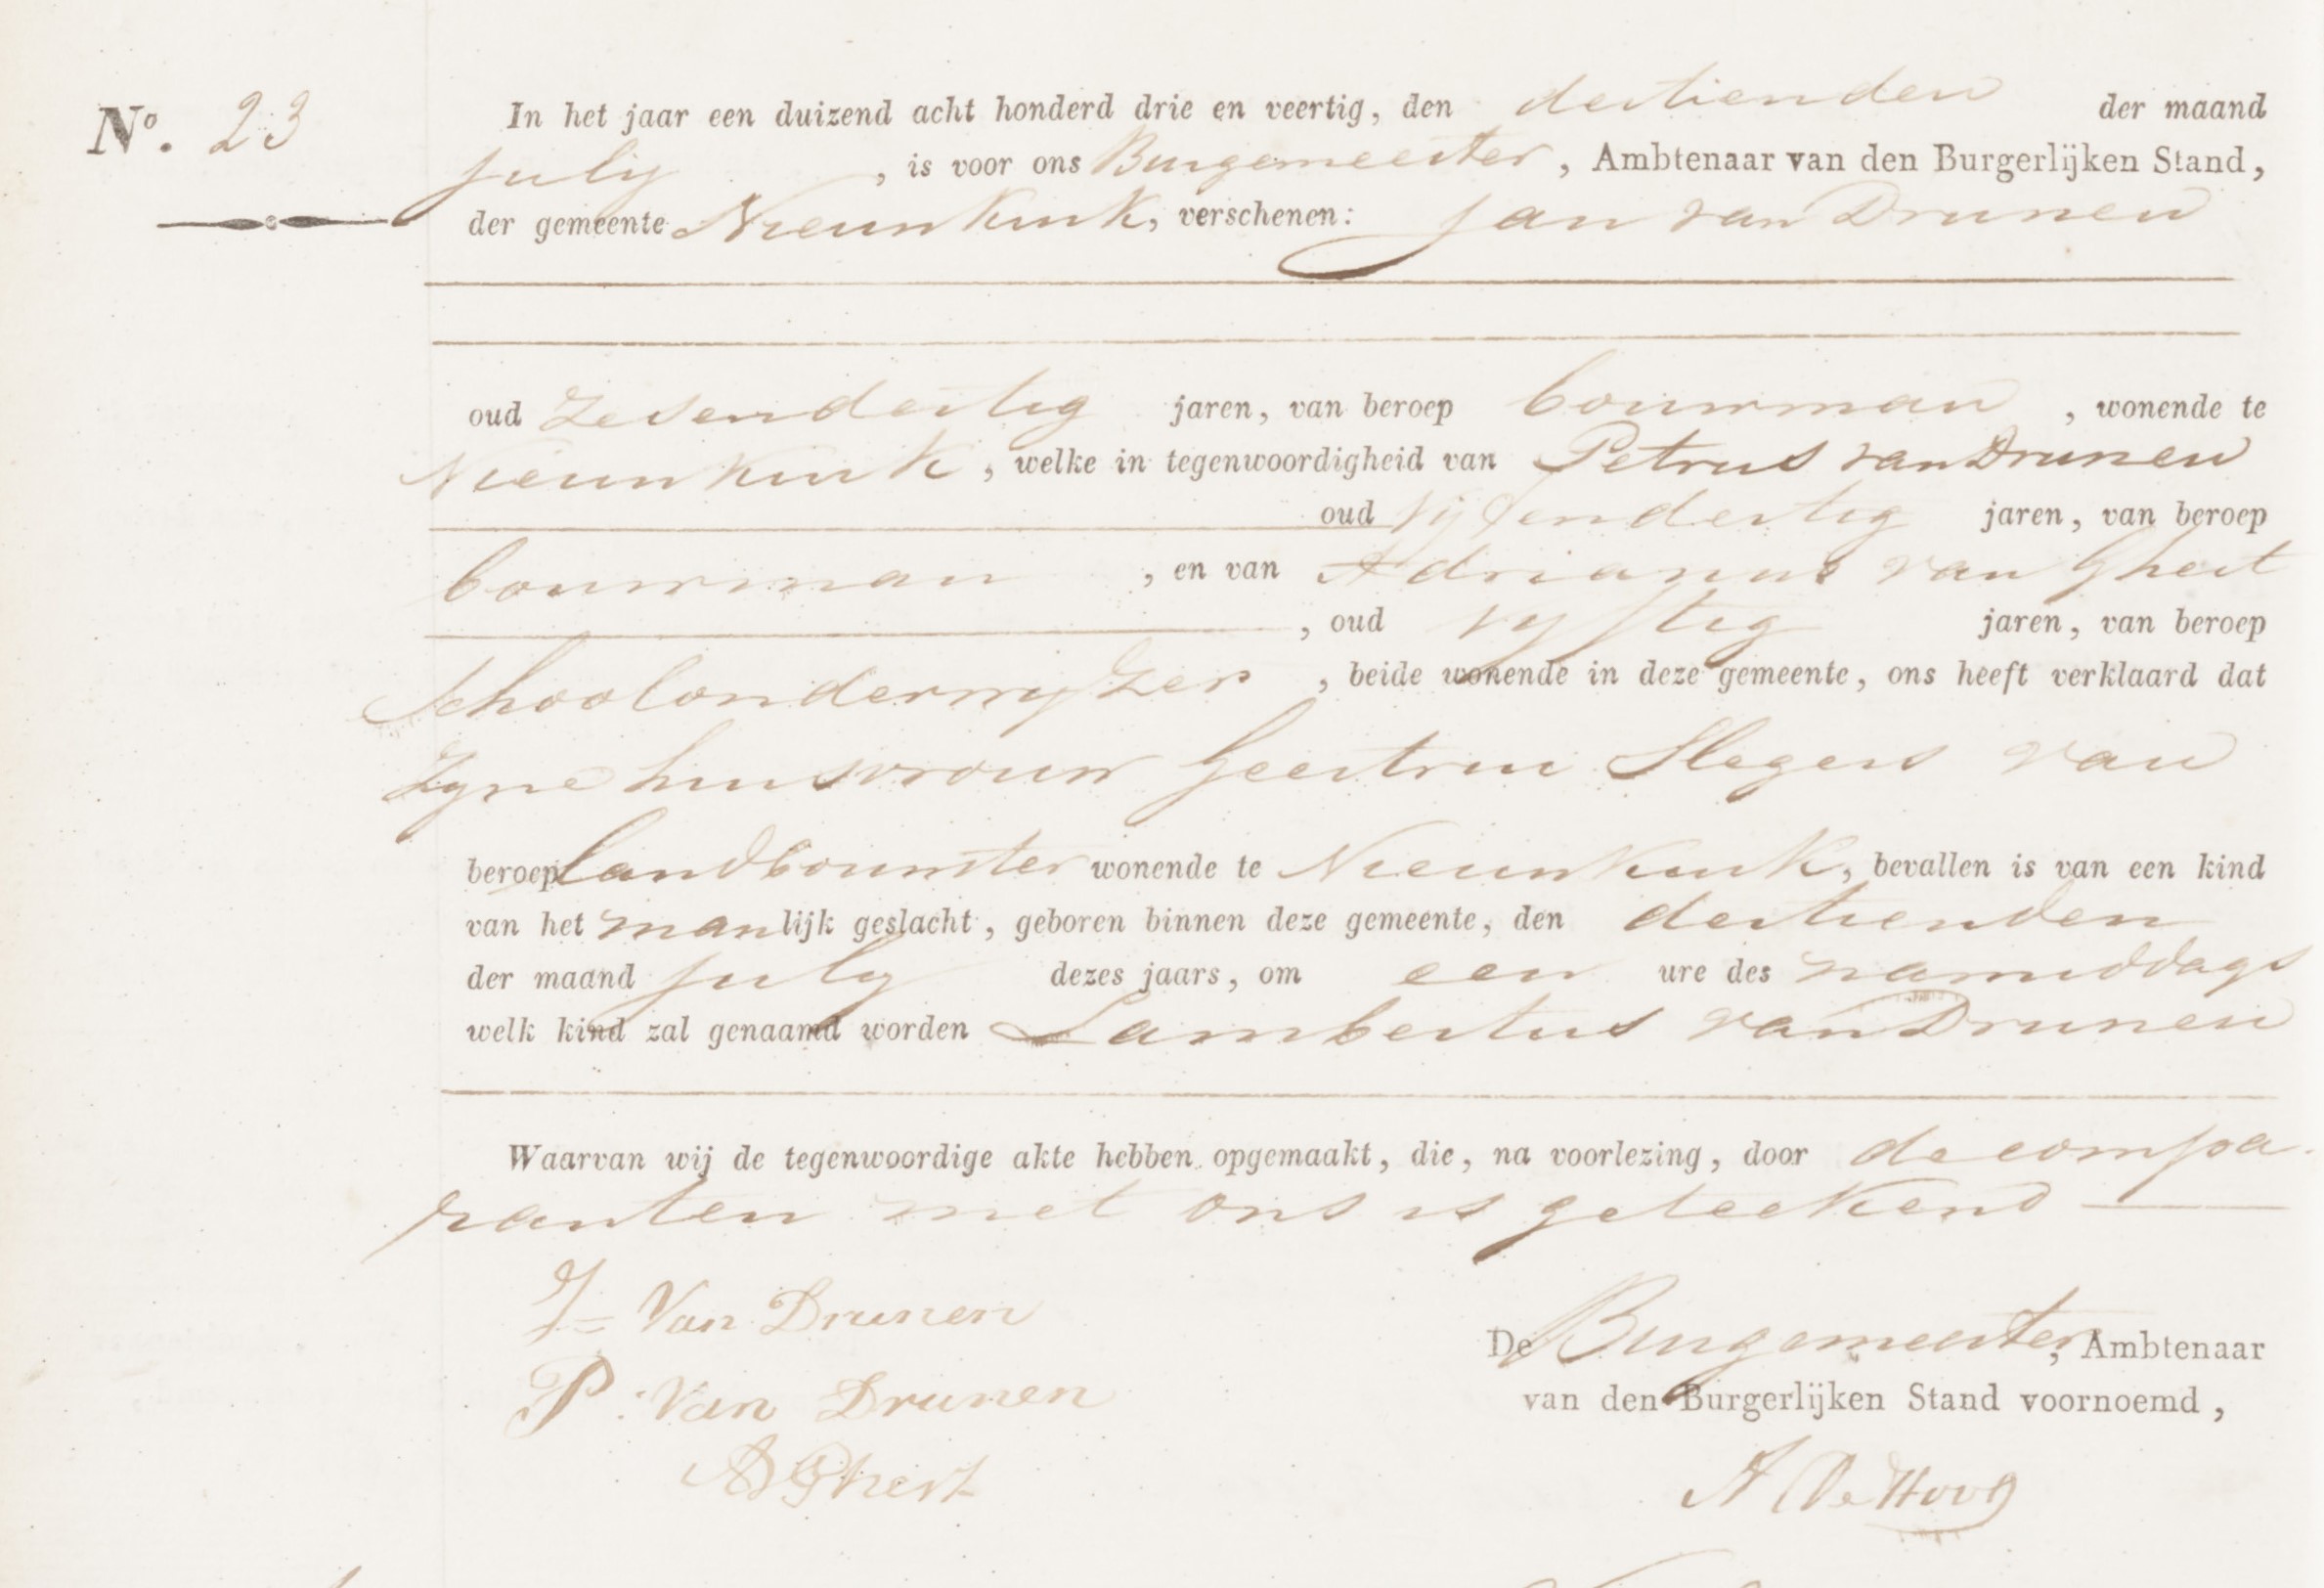 No. 23
In het jaar een duizend acht honderd drie en veertig, den dertienden der maand
july, is voor ons Burgemeester, Ambtenaar van den Burgerlijken Stand,
der gemeente Nieuwkuik, verschenen: Jan van Drunen
oud zesendertig jaren, van beroep bouwman, wonende te
Nieuwkuik, welke in tegenwoordigheid van Petrus van Drunen
oud vijfendertig jaren, van beroep
bouwman, en van Adrianus van Ghert
, oud vyftig jaren, van beroep
Schoolonderwyzer, beide wonende in deze gemeente, ons heeft verklaard dat
zyne huisvrouw Geertrui Slegers van
beroep landbouwster wonende te Nieuwkuik, bevallen is van een kind
van het manlijk geslacht, geboren binnen deze gemeente, den dertienden
der maand july dezes jaars, om een ure des namiddags
welk kind zal genaamd worden Lambertus van Drunen
Waarvan wij de tegenwoordige akte hebben opgemaakt, die, na voorlezing, door de compa-
ranten met ons is geteekend
J= Van Drunen
P. Van Drunen
De Burgemeester, Ambtenaar
van den Burgerlijken Stand voornoemd,
A V Ghert
A De Hoog